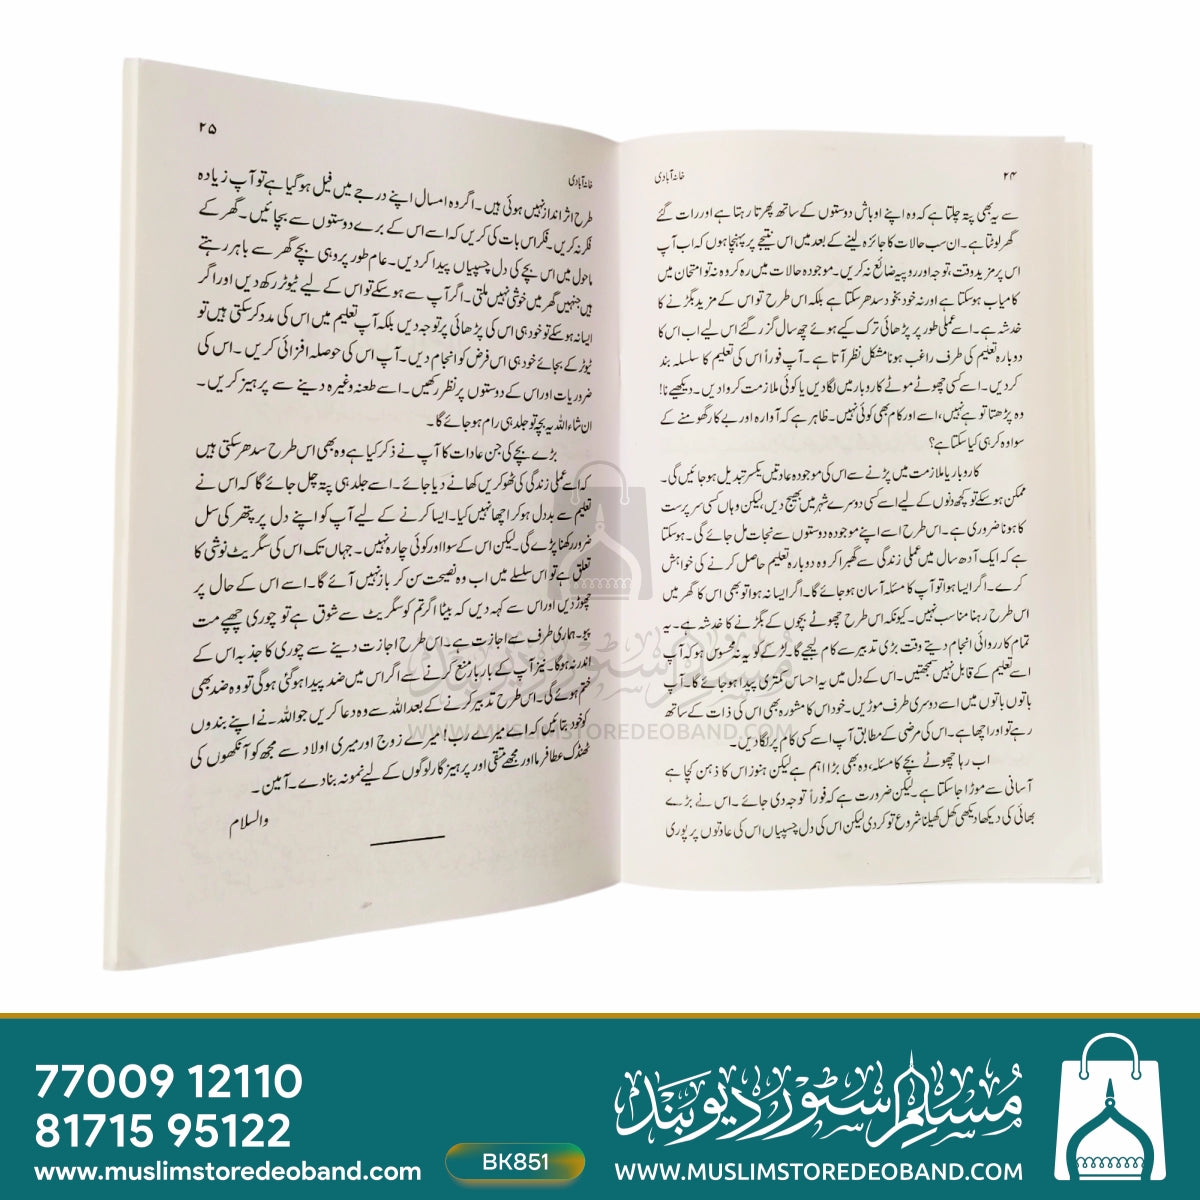 ۲۴
خانہ آبادی
سے یہ بھی پتہ چلتا ہے کہ وہ اپنے اوباش دوستوں کے ساتھ پھرتا رہتا ہے اور رات گئے
گھر لوٹتا ہے۔ ان سب حالات کا جائزہ لینے کے بعد میں اس نتیجے پر پہنچا ہوں کہ اب آپ
اس پر مزید وقت، توجہ اور روپیہ ضائع نہ کریں۔ موجودہ حالات میں رہ کر وہ نہ تو امتحان میں
کامیاب ہوسکتا ہے اور نہ خود بخود سدھر سکتا ہے بلکہ اس طرح تو اس کے مزید بگڑنے کا
خدشہ ہے۔ اسے عملی طور پر پڑھائی ترک کیے ہوئے چھ سال گزر گئے اس لیے اب اس کا
دوبارہ تعلیم کی طرف راغب ہونا مشکل نظر آتا ہے۔ آپ فوراً اس کی تعلیم کا سلسلہ بند
کردیں۔ اسے کسی چھوٹے موٹے کاروبار میں لگادیں یا کوئی ملازمت کروادیں۔ دیکھیے نا!
وہ پڑھتا تو ہے نہیں، اسے اور کام بھی کوئی نہیں۔ ظاہر ہے کہ آوارہ اور بے کار گھومنے کے
سوا وہ کر ہی کیا سکتا ہے؟
کاروبار یا ملازمت میں پڑنے سے اس کی موجودہ عادتیں یکسر تبدیل ہوجائیں گی۔
ممکن ہوسکے تو کچھ دنوں کے لیے اسے کسی دوسرے شہر میں بھیج دیں، لیکن وہاں کسی سرپرست
کا ہونا ضروری ہے۔ اس طرح اسے اپنے موجودہ دوستوں سے نجات مل جائے گی۔ ہوسکتا
ہے کہ ایک آدھ سال میں عملی زندگی سے گھبرا کر وہ دوبارہ تعلیم حاصل کرنے کی خواہش
کرے۔ اگر ایسا ہوا تو آپ کا مسئلہ آسان ہوجائے گا۔ اگر ایسا نہ ہوا تو بھی اس کا گھر میں
اس طرح رہنا مناسب نہیں۔ کیونکہ اس طرح چھوٹے بچوں کے بگڑنے کا خدشہ ہے۔ یہ
تمام کارروائی انجام دیتے وقت بڑی تدبیر سے کام لیجیے گا۔ لڑکے کو یہ نہ محسوس ہو کہ آپ
اسے تعلیم کے قابل نہیں سمجھتیں۔ اس کے دل میں یہ احساس کمتری پیدا ہوجائے گا۔ آپ
باتوں باتوں میں اسے دوسری طرف موڑیں۔ خود اس کا مشورہ بھی اس کی ذات کے ساتھ
رہے تو اور اچھا ہے۔ اس کی مرضی کے مطابق آپ اسے کسی کام پر لگادیں۔
اب رہا چھوٹے بچے کا مسئلہ، وہ بھی بڑا اہم ہے لیکن ہنوز اس کا ذہن کچا ہے
آسانی سے موڑا جاسکتا ہے۔ لیکن ضرورت ہے کہ فوراً توجہ دی جائے۔ اس نے بڑے
بھائی کی دیکھا دیکھی کھل کھیلنا شروع تو کردی لیکن اس کی دل چسپیاں اس کی عادتوں پر پوری
۲۵
خانہ آبادی
طرح اثر انداز نہیں ہوئی ہیں۔ اگر وہ امسال اپنے درجے میں فیل ہوگیا ہے تو آپ زیادہ
فکر نہ کریں۔ فکر اس بات کی کریں کہ اسے اس کے برے دوستوں سے بچائیں۔ گھر کے
ماحول میں اس بچے کی دل چسپیاں پیدا کردیں۔ عام طور پر وہی بچے گھر سے باہر رہتے
ہیں جنہیں گھر میں خوشی نہیں ملتی۔ اگر آپ سے ہوسکے تو اس کے لیے ٹیوٹر رکھ دیں اور اگر
ایسا نہ ہوسکے تو خود ہی اس کی پڑھائی پر توجہ دیں بلکہ آپ تعلیم میں اس کی مدد کرسکتی ہیں تو
ٹیوٹر کے بجائے خود ہی اس فرض کو انجام دیں۔ آپ اس کی حوصلہ افزائی کریں۔ اس کی
ضروریات اور اس کے دوستوں پر نظر رکھیں۔ اسے طعنہ وغیرہ دینے سے پرہیز کریں۔
ان شاء اللہ یہ بچہ تو جلد ہی رام ہوجائے گا۔
بڑے بچے کی جن عادات کا آپ نے ذکر کیا ہے وہ بھی اس طرح سدھر سکتی ہیں
کہ اسے عملی زندگی کی ٹھوکریں کھانے دیا جائے۔ اسے جلد ہی پتہ چل جائے گا کہ اس نے
تعلیم سے بددل ہوکر اچھا نہیں کیا۔ ایسا کرنے کے لیے آپ کو اپنے دل پر پتھر کی سل
ضرور رکھنا پڑے گی۔ لیکن اس کے سوا اور کوئی چارہ نہیں۔ جہاں تک اس کی سگریٹ نوشی کا
تعلق ہے تو اس سلسلے میں اب وہ نصیحت سن کر باز نہیں آئے گا۔ اسے اس کے حال پر
چھوڑ دیں اور اس سے کہہ دیں کہ بیٹا اگر تم کو سگریٹ سے شوق ہے تو چوری چھپے مت
پیو۔ ہماری طرف سے اجازت ہے۔ اس طرح اجازت دینے سے چوری کا جذبہ اس کے
اندر نہ ہوگا۔ نیز آپ کے بار بار منع کرنے سے اگر اس میں ضد پیدا ہوگئی ہوگی تو وہ ضد بھی
ختم ہوئے گی۔ اس طرح تدبیر کرنے کے بعد اللہ سے وہ دعا کریں جو اللہ نے اپنے بندوں
کو خود بتائیں کہ اے میرے رب! میرے زوج اور میری اولاد سے مجھ کو آنکھوں کی
ٹھنڈک عطا فرما اور مجھے متقی اور پرہیزگار لوگوں کے لیے نمونہ بنادے۔ آمین۔
والسلام
مسلم سٹور دیوبند
WWW.MUSLIMSTOREDEOBAND.COM
77009 12110
81715 95122
www.muslimstoredeoband.com
BK851
مسلم سٹور دیوبند
WWW.MUSLIMSTOREDEOBAND.COM